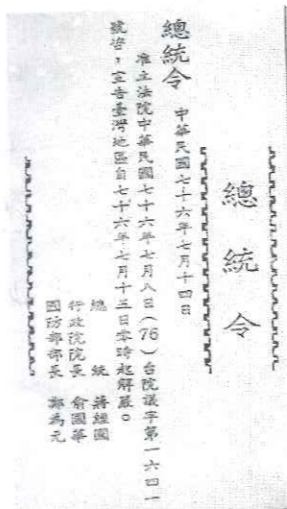 總統令
總統令 中華民國七十六年七月十四日
准立法院中華民國七十六年七月八日(76)台院議字第一六四一
號咨,宣告臺灣地區自七十六年七月十五日零時起解嚴。
總統 蔣經國
行政院院長 俞國華
國防部部長 鄭為元